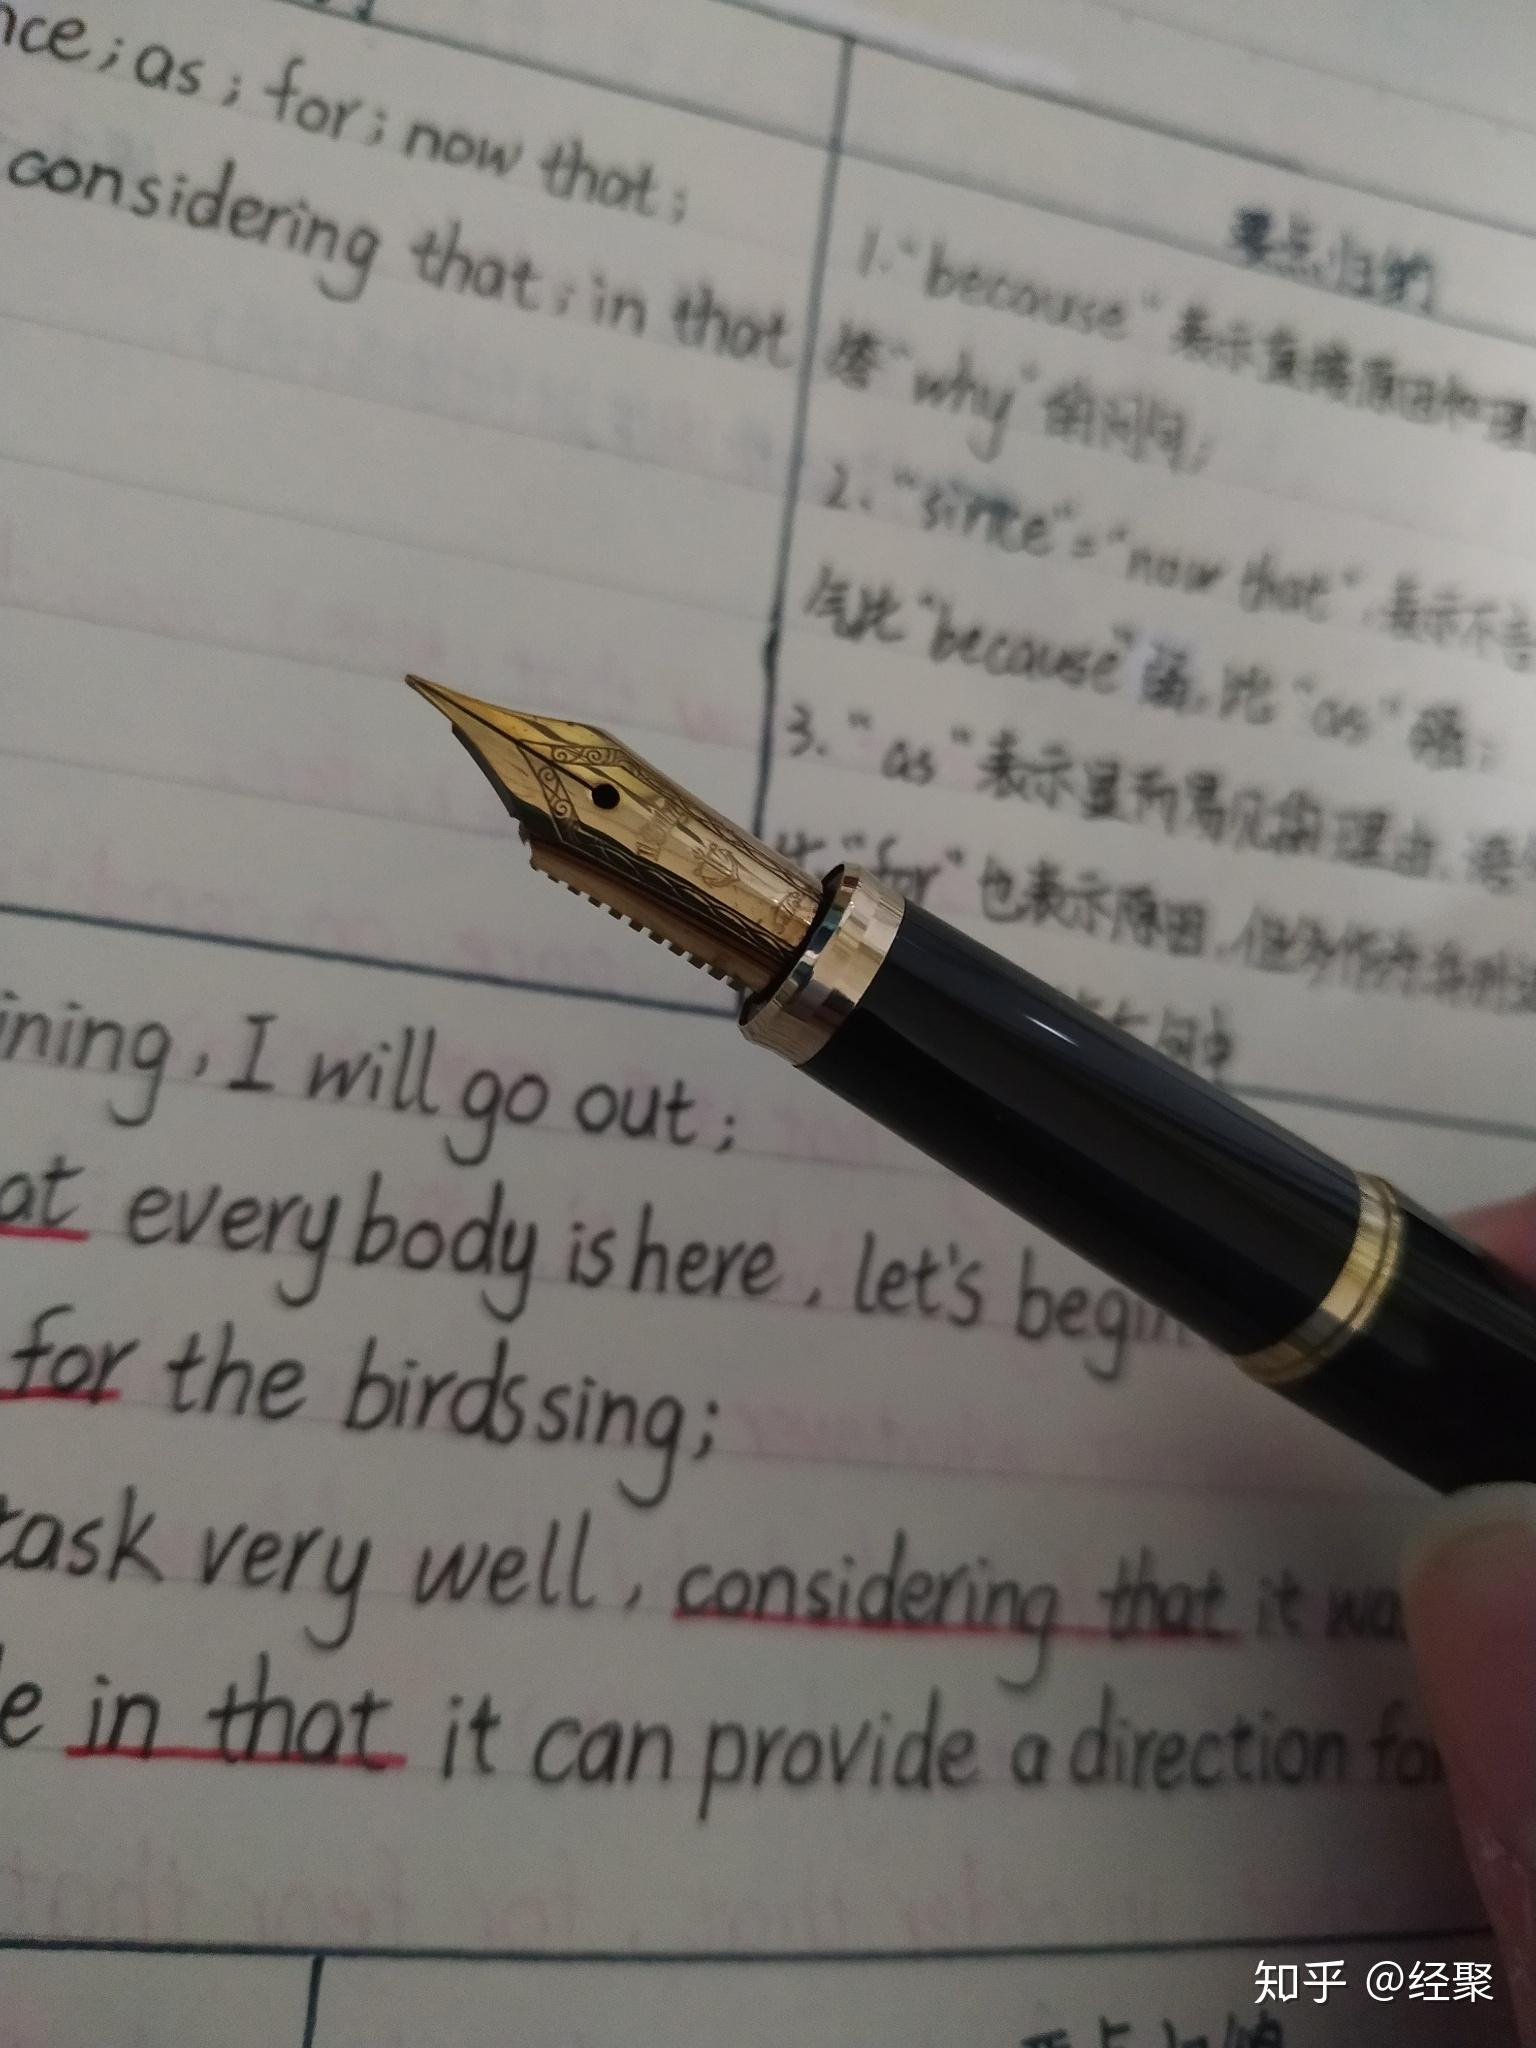 nce; as; for; now that;
considering that; in that
要点归纳
1. "because" 表示直接原因和理
答 "why" 的问句;
2. "since" = "now that", 表示不言
气比 "because" 弱, 比 "as" 强;
3. "as" 表示显而易见的理由, 语
4. "for" 也表示原因, 但
句中
ining, I will go out;
at everybody is here, let's begin
for the birds sing;
task very well, considering that it wa
e in that it can provide a direction for
知乎 @经聚